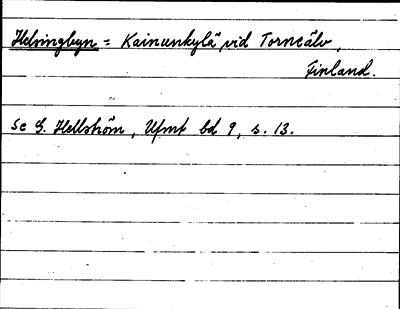 Helsingbyn = Kainunkylä vid Torneälv,
Finland.
Se G. Hellström, Ufmt bd 9, s. 13.